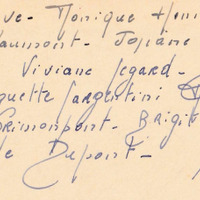 ve - Monique Hen
aumont - Josiane
Viviane Legard -
quette Sargentini
Grimonpont - Brigit
e Depont -